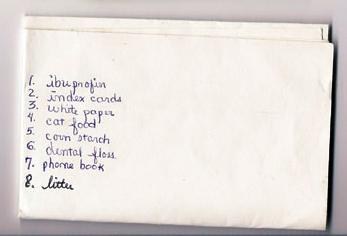 1. ibuprofin
2. index cards
3. white paper
4. cat food
5. corn starch
6. dental floss
7. phone book
8. litter